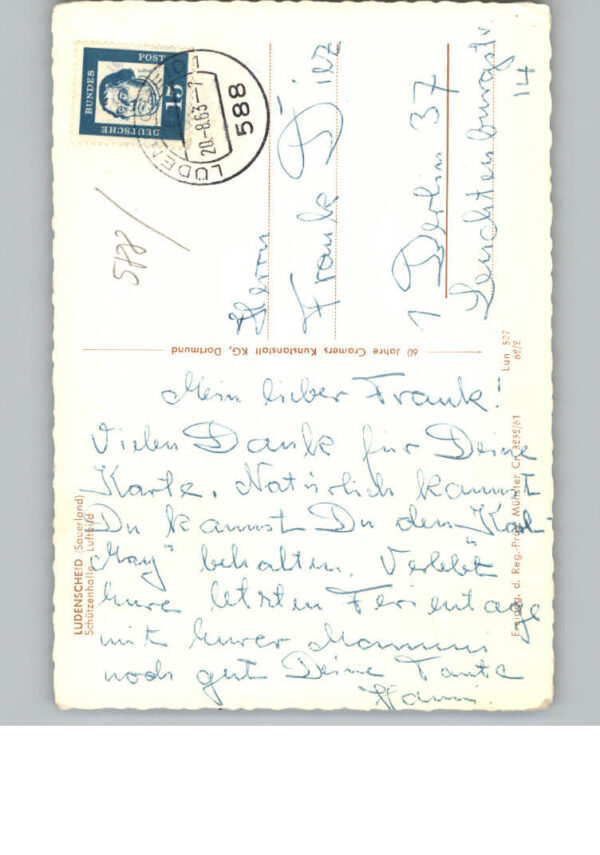 DEUTSCHE
BUNDES
POST
15
LÜDENSCHEID
20.-8.63.-7
588
588/
Herrn
Frank Diez
1 Berlin 37
Leuchtenburgstr.
14
60 Jahre Cramers Kunstanstalt KG, Dortmund
Lün 507
62/2
Mein lieber Frank!
Vielen Dank für Deine
Karte. Natürlich kannst
Du kannst Du den "Karl-
May" behalten. Verlebt
Eure letzten Ferientage
mit Eurer Mammi
noch gut Deine Tante
Hanni.
LÜDENSCHEID (Sauerland)
Schützenhalle - Luftbild
Freigeg. d. Reg.-Präs. Münster Cr. 3232/61